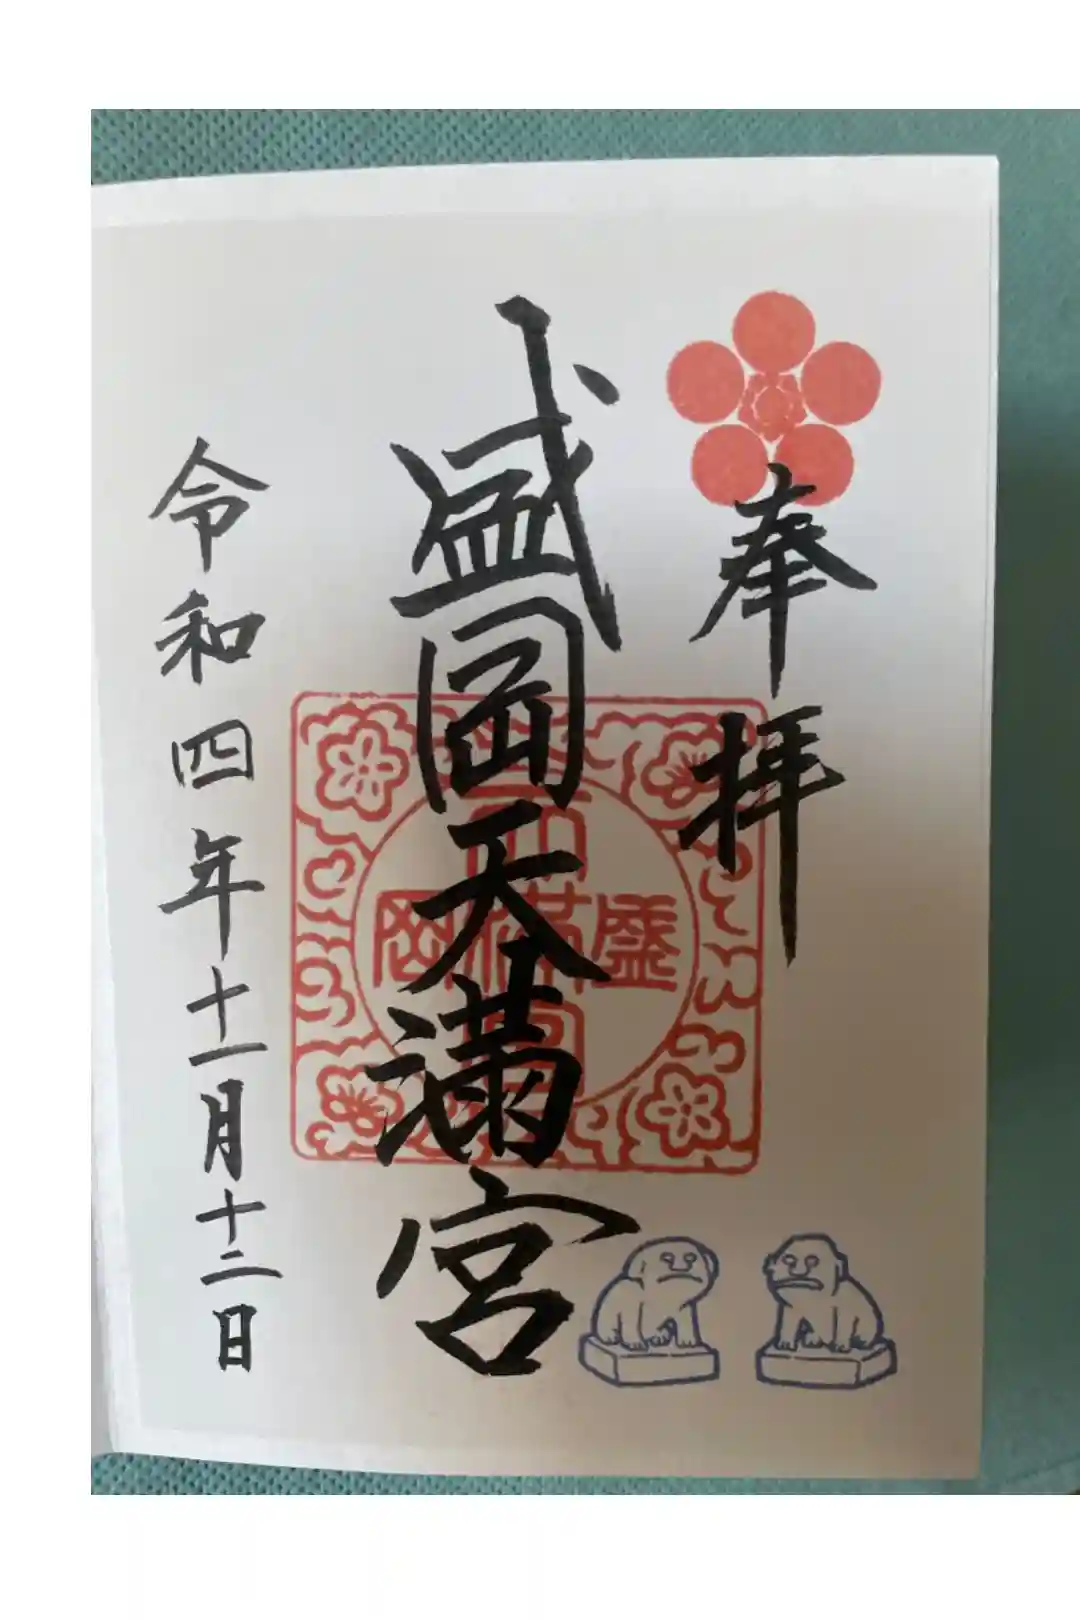 奉拝
盛岡天満宮
令和四年十一月十二日
盛岡
天満宮